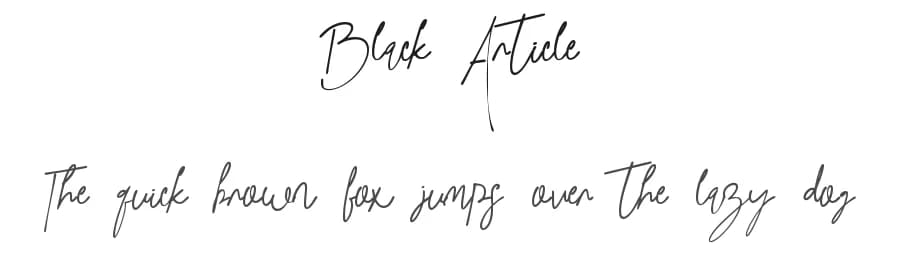 Black Article
The quick brown fox jumps over the lazy dog